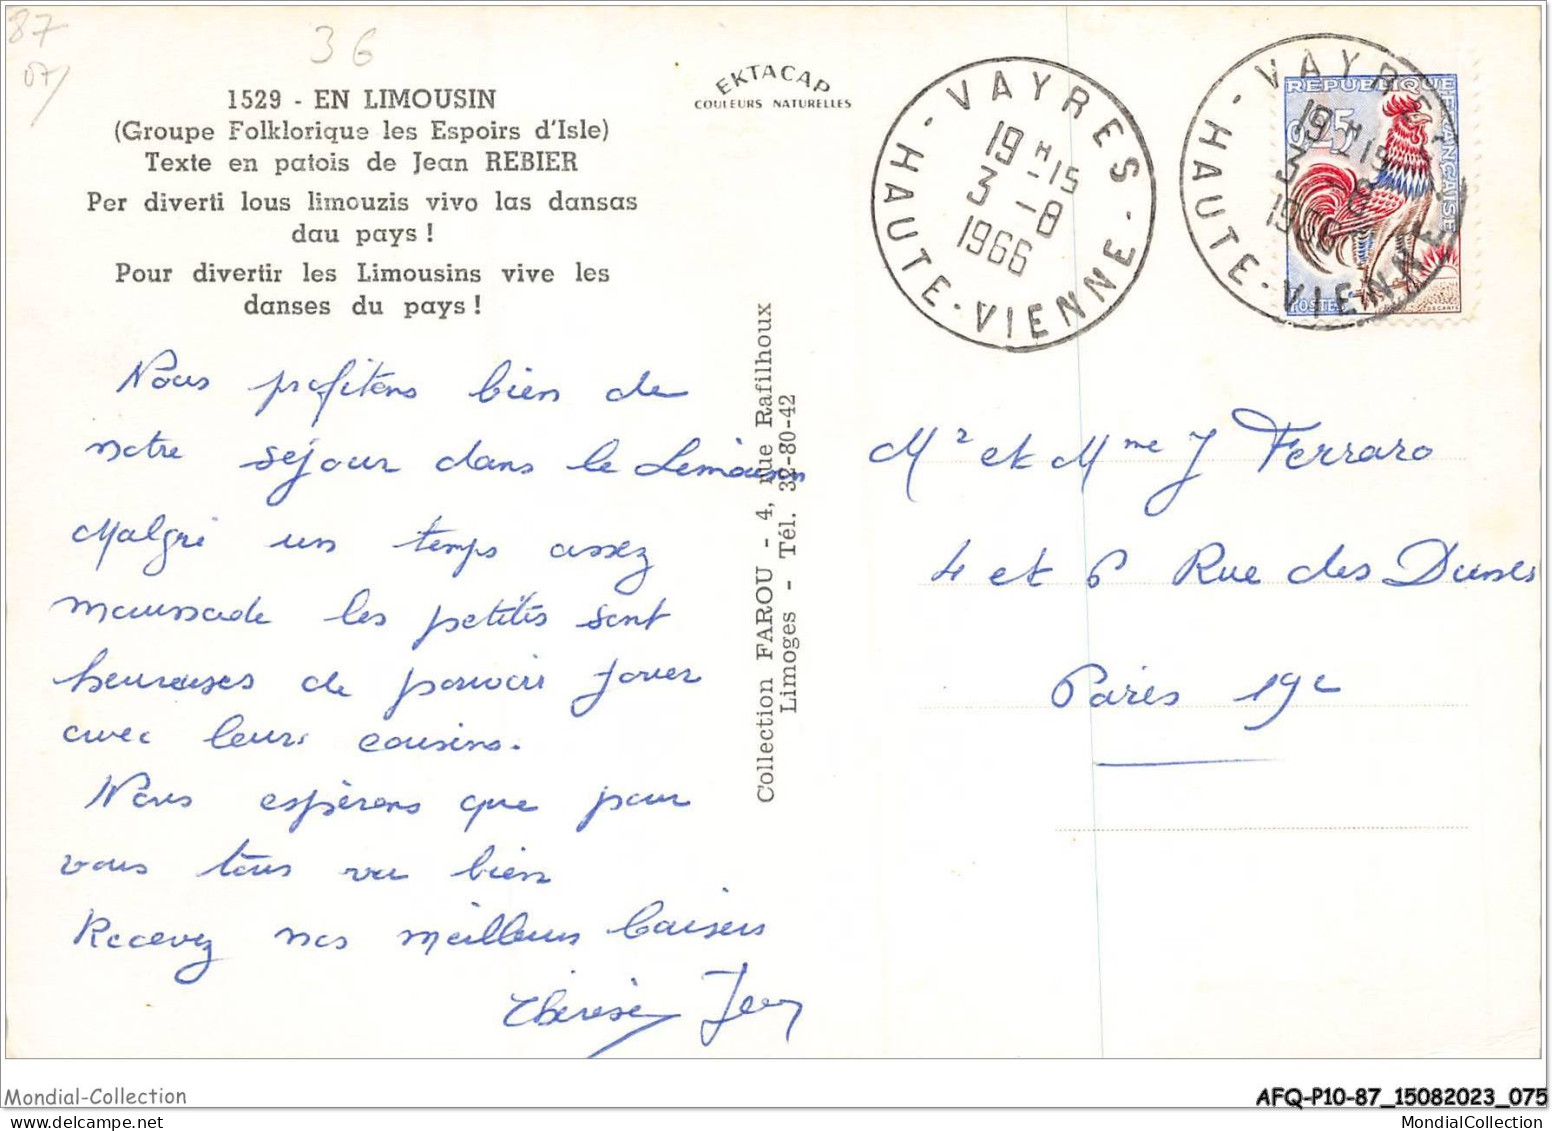 87
07/
36
1529 - EN LIMOUSIN
(Groupe Folklorique les Espoirs d'Isle)
Texte en patois de Jean REBIER
Per diverti lous limouzis vivo las dansas
dau pays !
Pour divertir les Limousins vive les
danses du pays !
EKTACAP
COULEURS NATURELLES
VAYRES
19 H -15
3 -8
1966
HAUTE-VIENNE
VAYRES
19 H -15
3 -8
1966
HAUTE-VIENNE
REPUBLIQUE FRANÇAISE
0,25
POSTES
DECARIS
Nous profitons bien de
notre séjour dans le Limousin
Malgré un temps assez
maussade les petites sont
heureuses de pouvoir jouer
avec leurs cousins.
Nous espérons que pour
vous tous va bien
Recevez nos meilleurs baisers
Thérèse Jean
Collection FAROU - 4, rue Rafilhoux
Limoges - Tél. 32-80-42
Mr et Mme J Ferraro
4 et 6 Rue des Dunes
Paris 19e
Mondial-Collection
AFQ-P10-87_15082023_075
MondialCollection